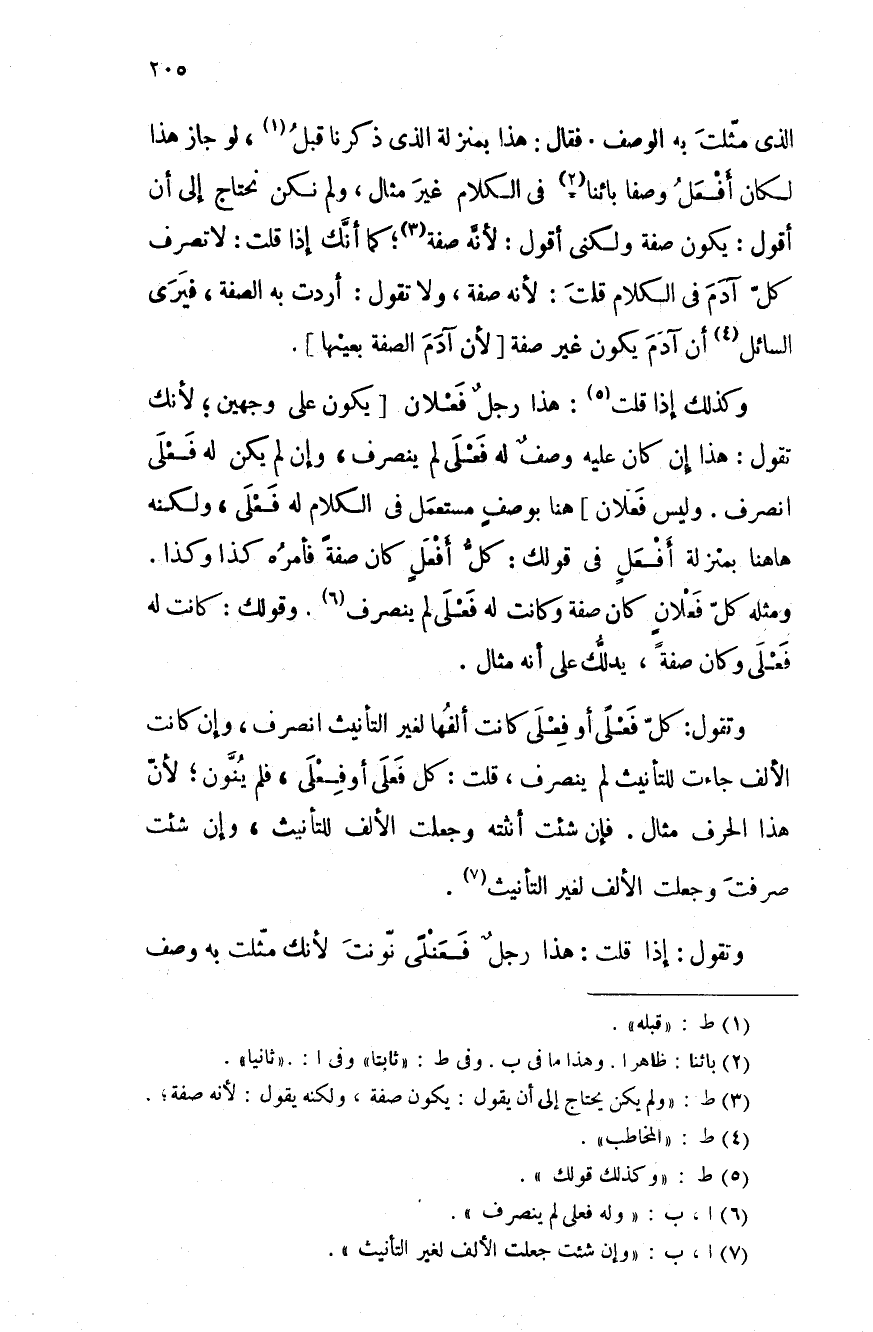 ٢٠٥
الذى مثّلتَ به الوصف . فقال : هذا بمنزلة الذى ذكرنا قبلُ(١) ، لو جاز هذا
لكان أَفْعَلُ وصفا بائنا(٢) فى الكلام غيرَ مثال ، ولم نكن نحتاج إلى أن
أقول : يكون صفة ولكنى أقول : لأنَّه صفة(٣)؛ كما أنَّك إذا قلت : لاتصرف
كلّ آدَمَ فى الكلام قلتَ : لأنه صفة ، ولا تقول : أردت به الصفة ، فيَرَى
السائل(٤) أن آدَمَ يكون غير صفة [ لأن آدَمَ الصفة بعينها ] .
وكذلك إذا قلت(٥) : هذا رجلٌ فَعْلان [ يكون على وجهين ؛ لأنك
تقول : هذا إن كان عليه وصفٌ له فَعْلَى لم ينصرف ، وإن لم يكن له فَعْلَى
انصرف . وليس فَعْلان ] هنا بوصفٍ مستعمَل فى الكلام له فَعْلَى ، ولكنه
هاهنا بمنزلة أَفْعَلٍ فى قولك : كلُّ أَفْعَلٍ كان صفةً فأمرُه كذا وكذا .
ومثله كلّ فَعْلانٍ كان صفة وكانت له فَعْلَى لم ينصرف(٦) . وقولك : كانت له
فَعْلَى وكان صفةً ، يدلُّك على أنه مثال .
وتقول : كلّ فَعْلًى أو فِعْلَى كانت ألفُها لغير التأنيث انصرف ، وإن كانت
الألف جاءت للتأنيث لم ينصرف ، قلت : كل فَعْلَى أو فِعْلَى ، فلم يُنَّون ؛ لأنّ
هذا الحرف مثال . فإن شئت أنثته وجعلت الألف للتأنيث ، وإن شئت
صرفتَ وجعلت الألف لغير التأنيث(٧) .
وتقول : إذا قلت : هذا رجلٌ فَعَنْلًى نّونتَ لأنك مثّلت به وصف
(١) ط : «قبله» .
(٢) بائنا : ظاهرا . وهذا ما فى ب . وفى ط : «ثابتا» وفى ا : .«ثانيا» .
(٣) ط : «ولم يكن يحتاج إلى أن يقول : يكون صفة ، ولكنه يقول : لأنه صفة؛ .
(٤) ط : «المخاطب» .
(٥) ط : «وكذلك قولك » .
(٦) ا ، ب : « وله فعلى لم ينصرف » .
(٧) ا ، ب : «وإن شئت جعلت الألف لغير التأنيث » .